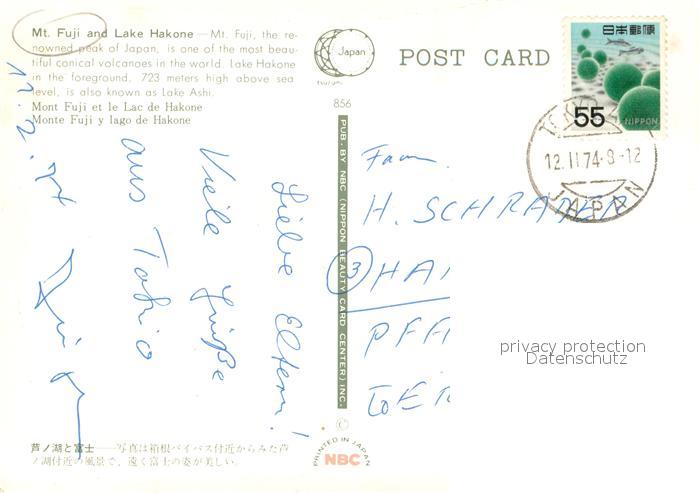 Mt. Fuji and Lake Hakone — Mt. Fuji, the re-
nowned peak of Japan, is one of the most beau-
tiful conical volcanoes in the world. Lake Hakone
in the foreground. 723 meters high above sea
level, is also known as Lake Ashi.
Mont Fuji et le Lac de Hakone
Monte Fuji y lago de Hakone
Japan
POST CARD
日本郵便
55
NIPPON
TOKYO
12.II.74.9-12
JAPAN
856
PUB. BY NBC (NIPPON BEAUTY CARD CENTER) INC.
Liebe Eltern!
Viele Grüße
aus Tokio
12.2.74
Fam.
H. SCHRADER
3 HA
PFA
GER
privacy protection
Datenschutz
芦ノ湖と富士——写真は箱根バイパス付近からみた芦
ノ湖付近の風景で、遠く富士の姿が美しい。
©
PRINTED IN JAPAN
NBC